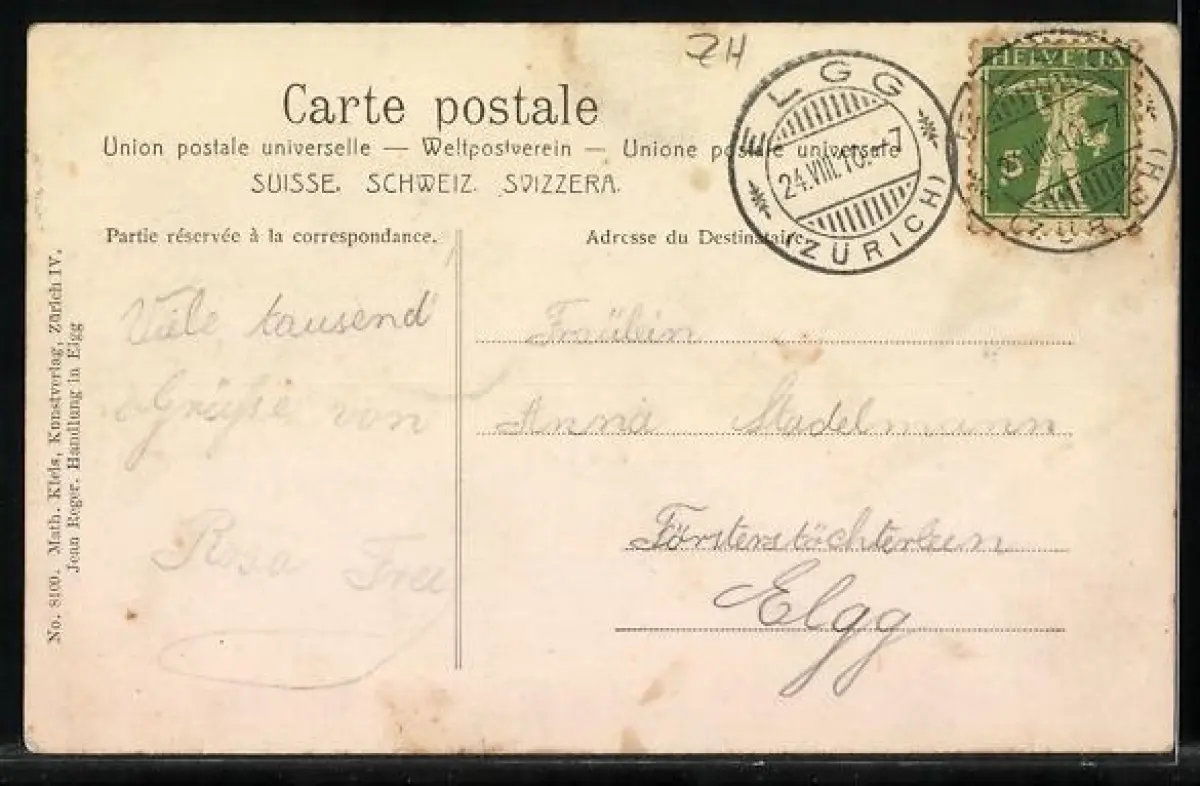 ZH
HELVETIA
5
ELGG
24.VIII.10.-7
(ZÜRICH)
Carte postale
Union postale universelle — Weltpostverein — Unione postale universale
SUISSE. SCHWEIZ. SVIZZERA.
Partie réservée à la correspondance.
Adresse du Destinataire.
Viele tausend
Grüße von
Rosa Frei
Fräulein
Anna Stadelmann
Försterstöchterlein
Elgg
No. 8100. Math. Kleis, Kunstverlag, Zürich IV.
Jean Reger, Handlung in Elgg